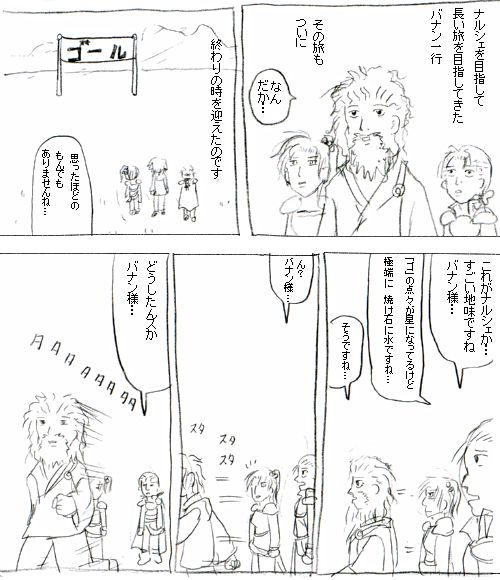 ナルシェを目指して
長い旅を目指してきた
バナン一行
その旅も
ついに
なん
だか…
終わりの時を迎えたのです
ゴール
思ったほどの
もんでも
ありませんね…
これがナルシェか…
すごい地味ですね
バナン様…
「ゴ」の点々が星になってるけど
極端に 焼け石に水ですね…
そうですね…
ん?
バナン様…
スタ
スタ
スタ
どうしたんスか
バナン様…
タタタタタタタタ